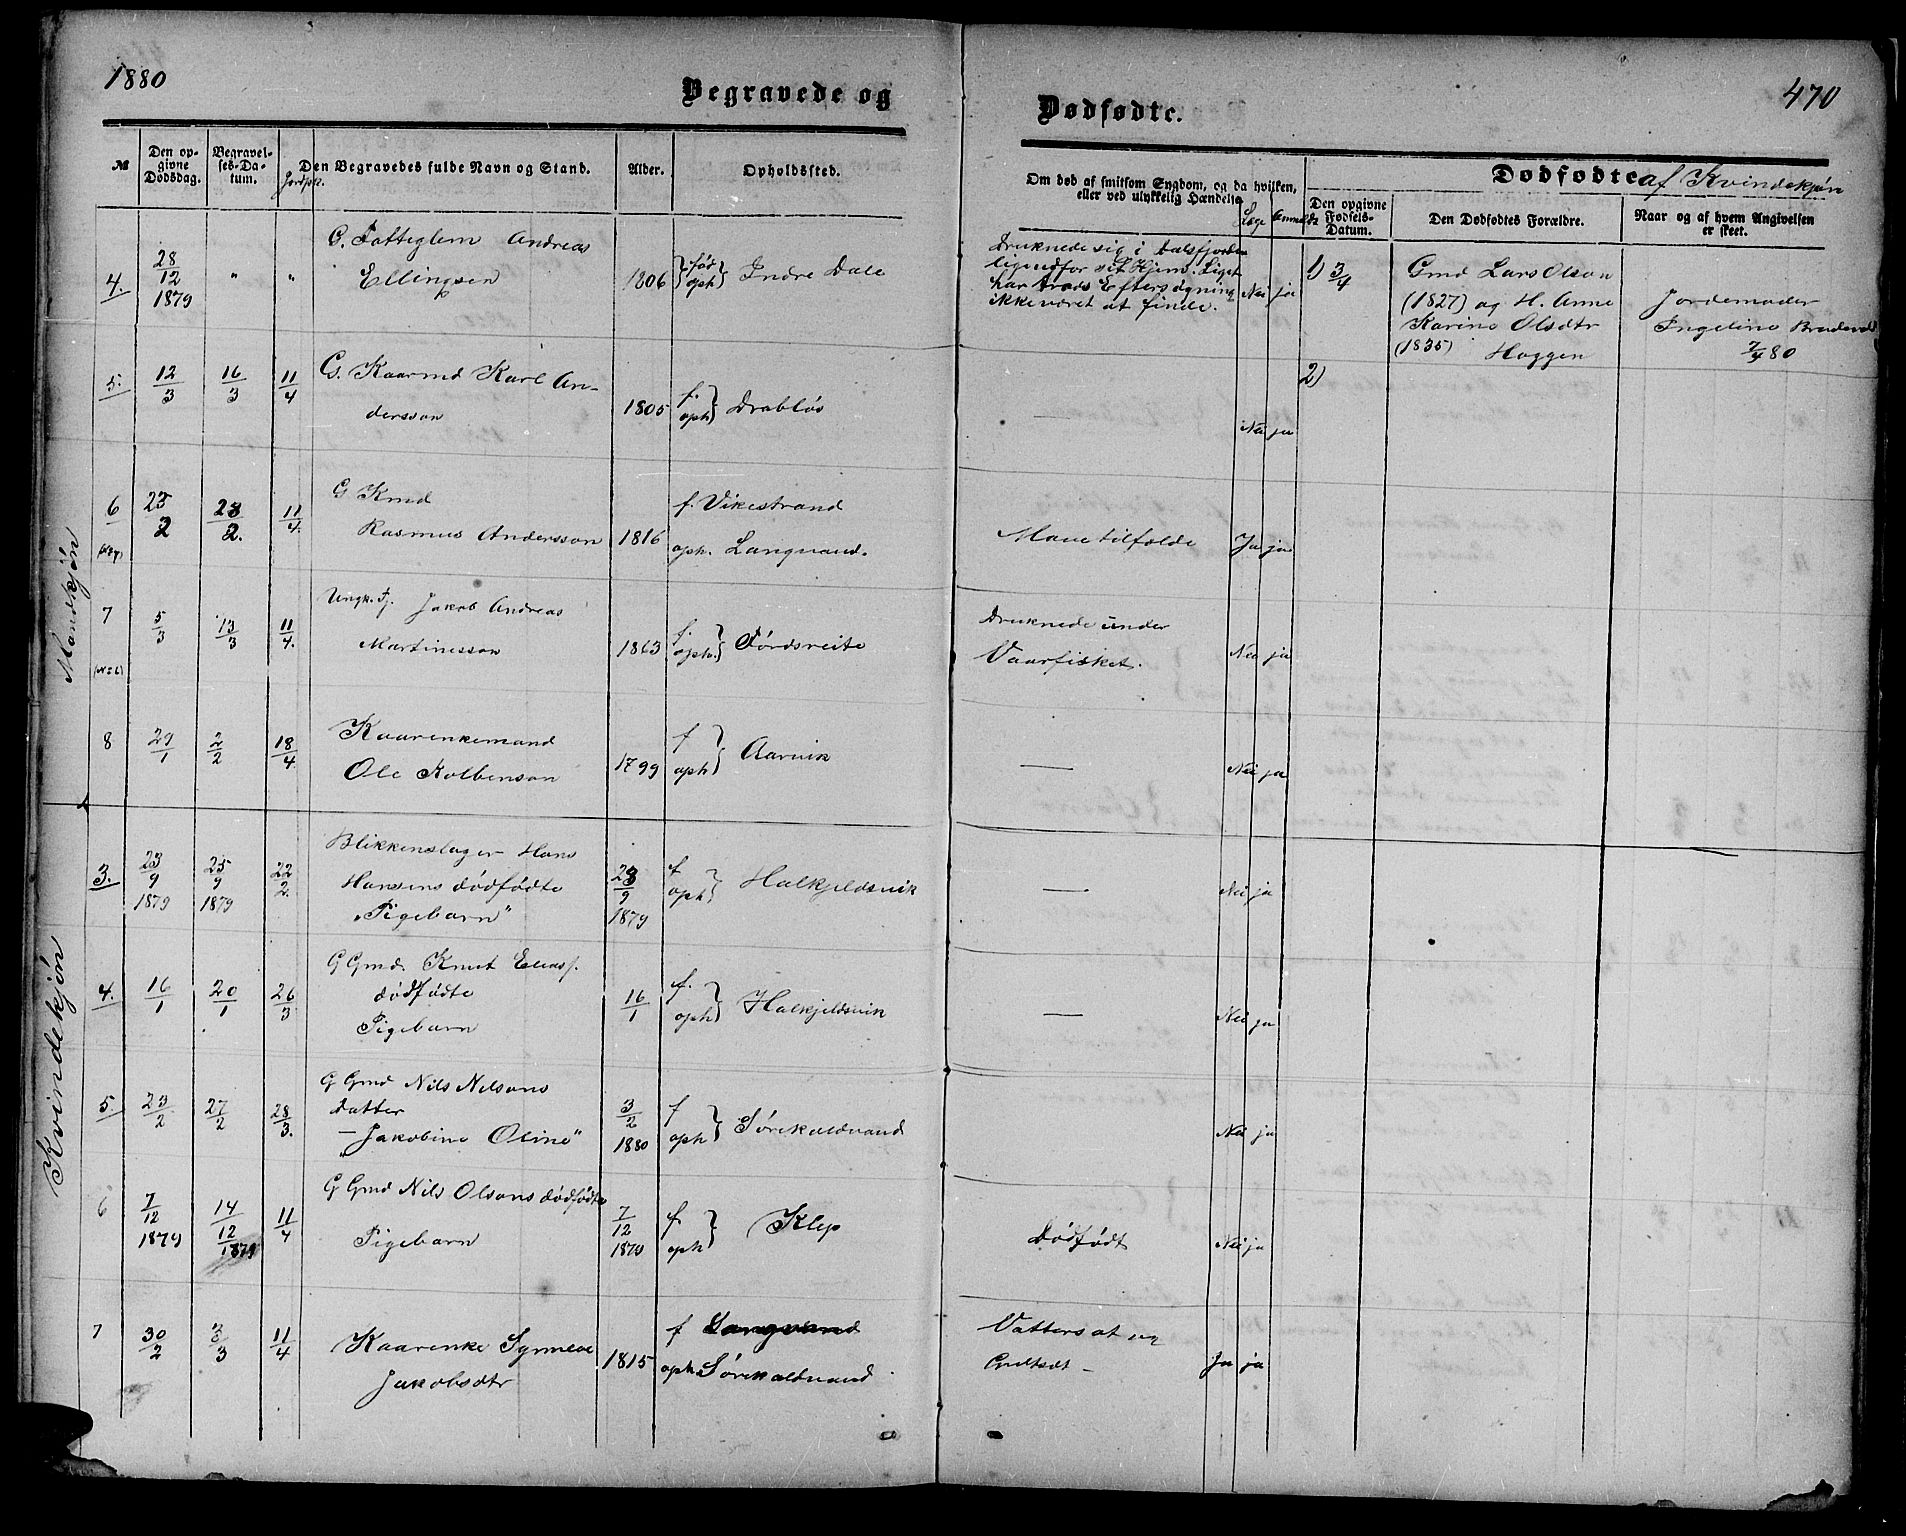 1880
Begravede og
Dødfødte.
470
№
Den opgivne Dødsdag.
Begravelses-Datum.
Jordpk.
Den Begravedes fulde Navn og Stand.
Alder.
Opholdssted.
Om død af smitsom Sygdom, og da hvilken, eller ved ulykkelig Hændelse
Læge
Anmeldt
Dødfødte af Kvindekjøn
Den opgivne Fødsels-Datum.
Den Dødfødtes Forældre.
Naar og af hvem Angivelsen er skeet.
Mandkjøn
4. 28/12 1879 " " G. Fatteglem Andreas
Ellingsen 1806 fød oph Indre Dale
Druknede sig i Dalsfjorden
ligeudfor sit Hjem. Liget
har trods Eftersøgning
ikke været at finde. Nei ja
1) 3/4 Gmd Lars Olson
(1827) og H. Anne
Karine Olsdtr
(1835) Haggen
Jordemoder
Ingeline
7/4 80
5. 12/3 16/3 11/4 G. Kaarmd Karl An-
dersson 1805 f. oph Drabløs — Nei ja
2)
6 25/2 28/2. 11/4. G Kmd
Rasmus Andersson 1816 f. Vikestrand
oph. Langvand. Mavetilfælde Ja ja
7 5/3 13/3 11/4. Ungk. Fj. Jakob Andreas
Martinesson 1863 f. oph Førdsreite
Druknede under
Vaarfisket. Nei ja
8 29/1 2/2 18/4 Kaarenkemand
Ole Kolbenson 1799 f oph Aarvik — Nei ja
Kvindekjøn
3. 23/9 1879 25/9 1879 22/2. Blikkenslager Hans
Hansens dødfødte
"Pigebarn" 23/9 1879 f oph Halkjeldsvik — Nei ja
4. 16/1 20/1 26/3 G Gmd. Knut Eliasf.
dødfødte
Pigebarn 16/1 f. oph Halkjeldsvik — Nei ja
5. 23/2 27/2 28/3. G Gmd Nils Nilsons
datter
"Jakobine Oline" 3/2 1880 f oph Sørekaldvand Nei ja
6 7/12 1879 14/12 1879 11/4 G Gmd Nils Olsons dødfødte
Pigebarn 7/12 1879 f. oph Klep Dødfødt Nei ja
7 30/2 3/3 11/4 Kaarenke Synneve
Jakobsdtr 1815 f Langvand
oph Sørekaldvand
Vattersot og
Ja ja